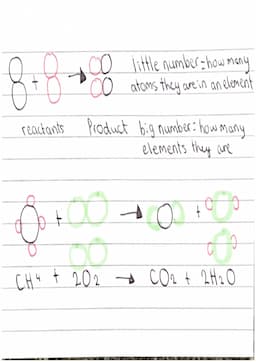 + → little number = how many
atoms they are in an element
reactants Product big number = how many
elements they are
+ → +
CH⁴ + 2O2 → CO2 + 2H2O